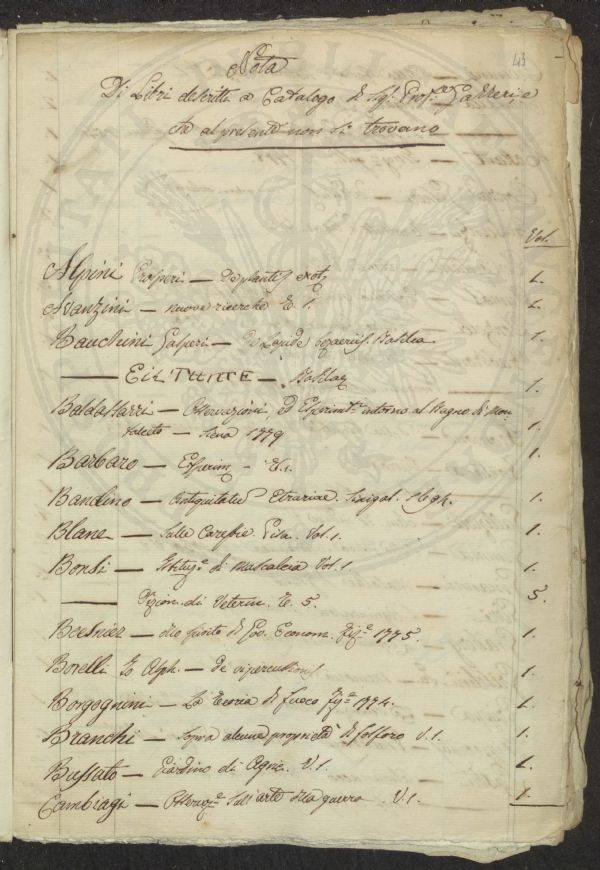 43
Nota
Di Libri descritti a Catalogo di Sig. Prof.re
che al presente non si trovano
Vol.
Alpini Prosperi — De plantis exot. 1.
Avanzini — nuove ricerche T. 1. 1.
Bauchini Gasperi — De Lapide 1.
— 1.
Baldassarri — Osservazioni, ed Esperim.ti intorno al Bagno di Mon
talceto — Siena 1779 1.
Barbaro — Esperim. — T. 1. 1.
Bandino — Antiquitatis Etruriae 1.
Blane — Sulle Pisa. Vol. 1. 1.
Bonsi — di Mascalcia Vol. 1 1.
— Dizion. di Veterin. T. 5. 5.
— di Gov. Econom. 1775. 1.
Borelli Jo Alph. — De vi percussionis 1.
Borgognini — La Teoria di fuoco 1774. 1.
Branchi — Sopra alcune proprietà di fosforo V. 1. 1.
Bussato — Giardino di Agric. V. 1. 1.
Cambiagi — sull'arte della guerra V. 1. 1.